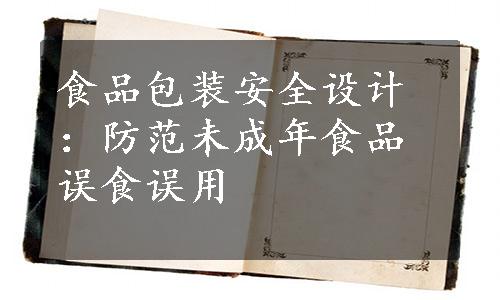 食品包装安全设计
：防范未成年食品
误食误用